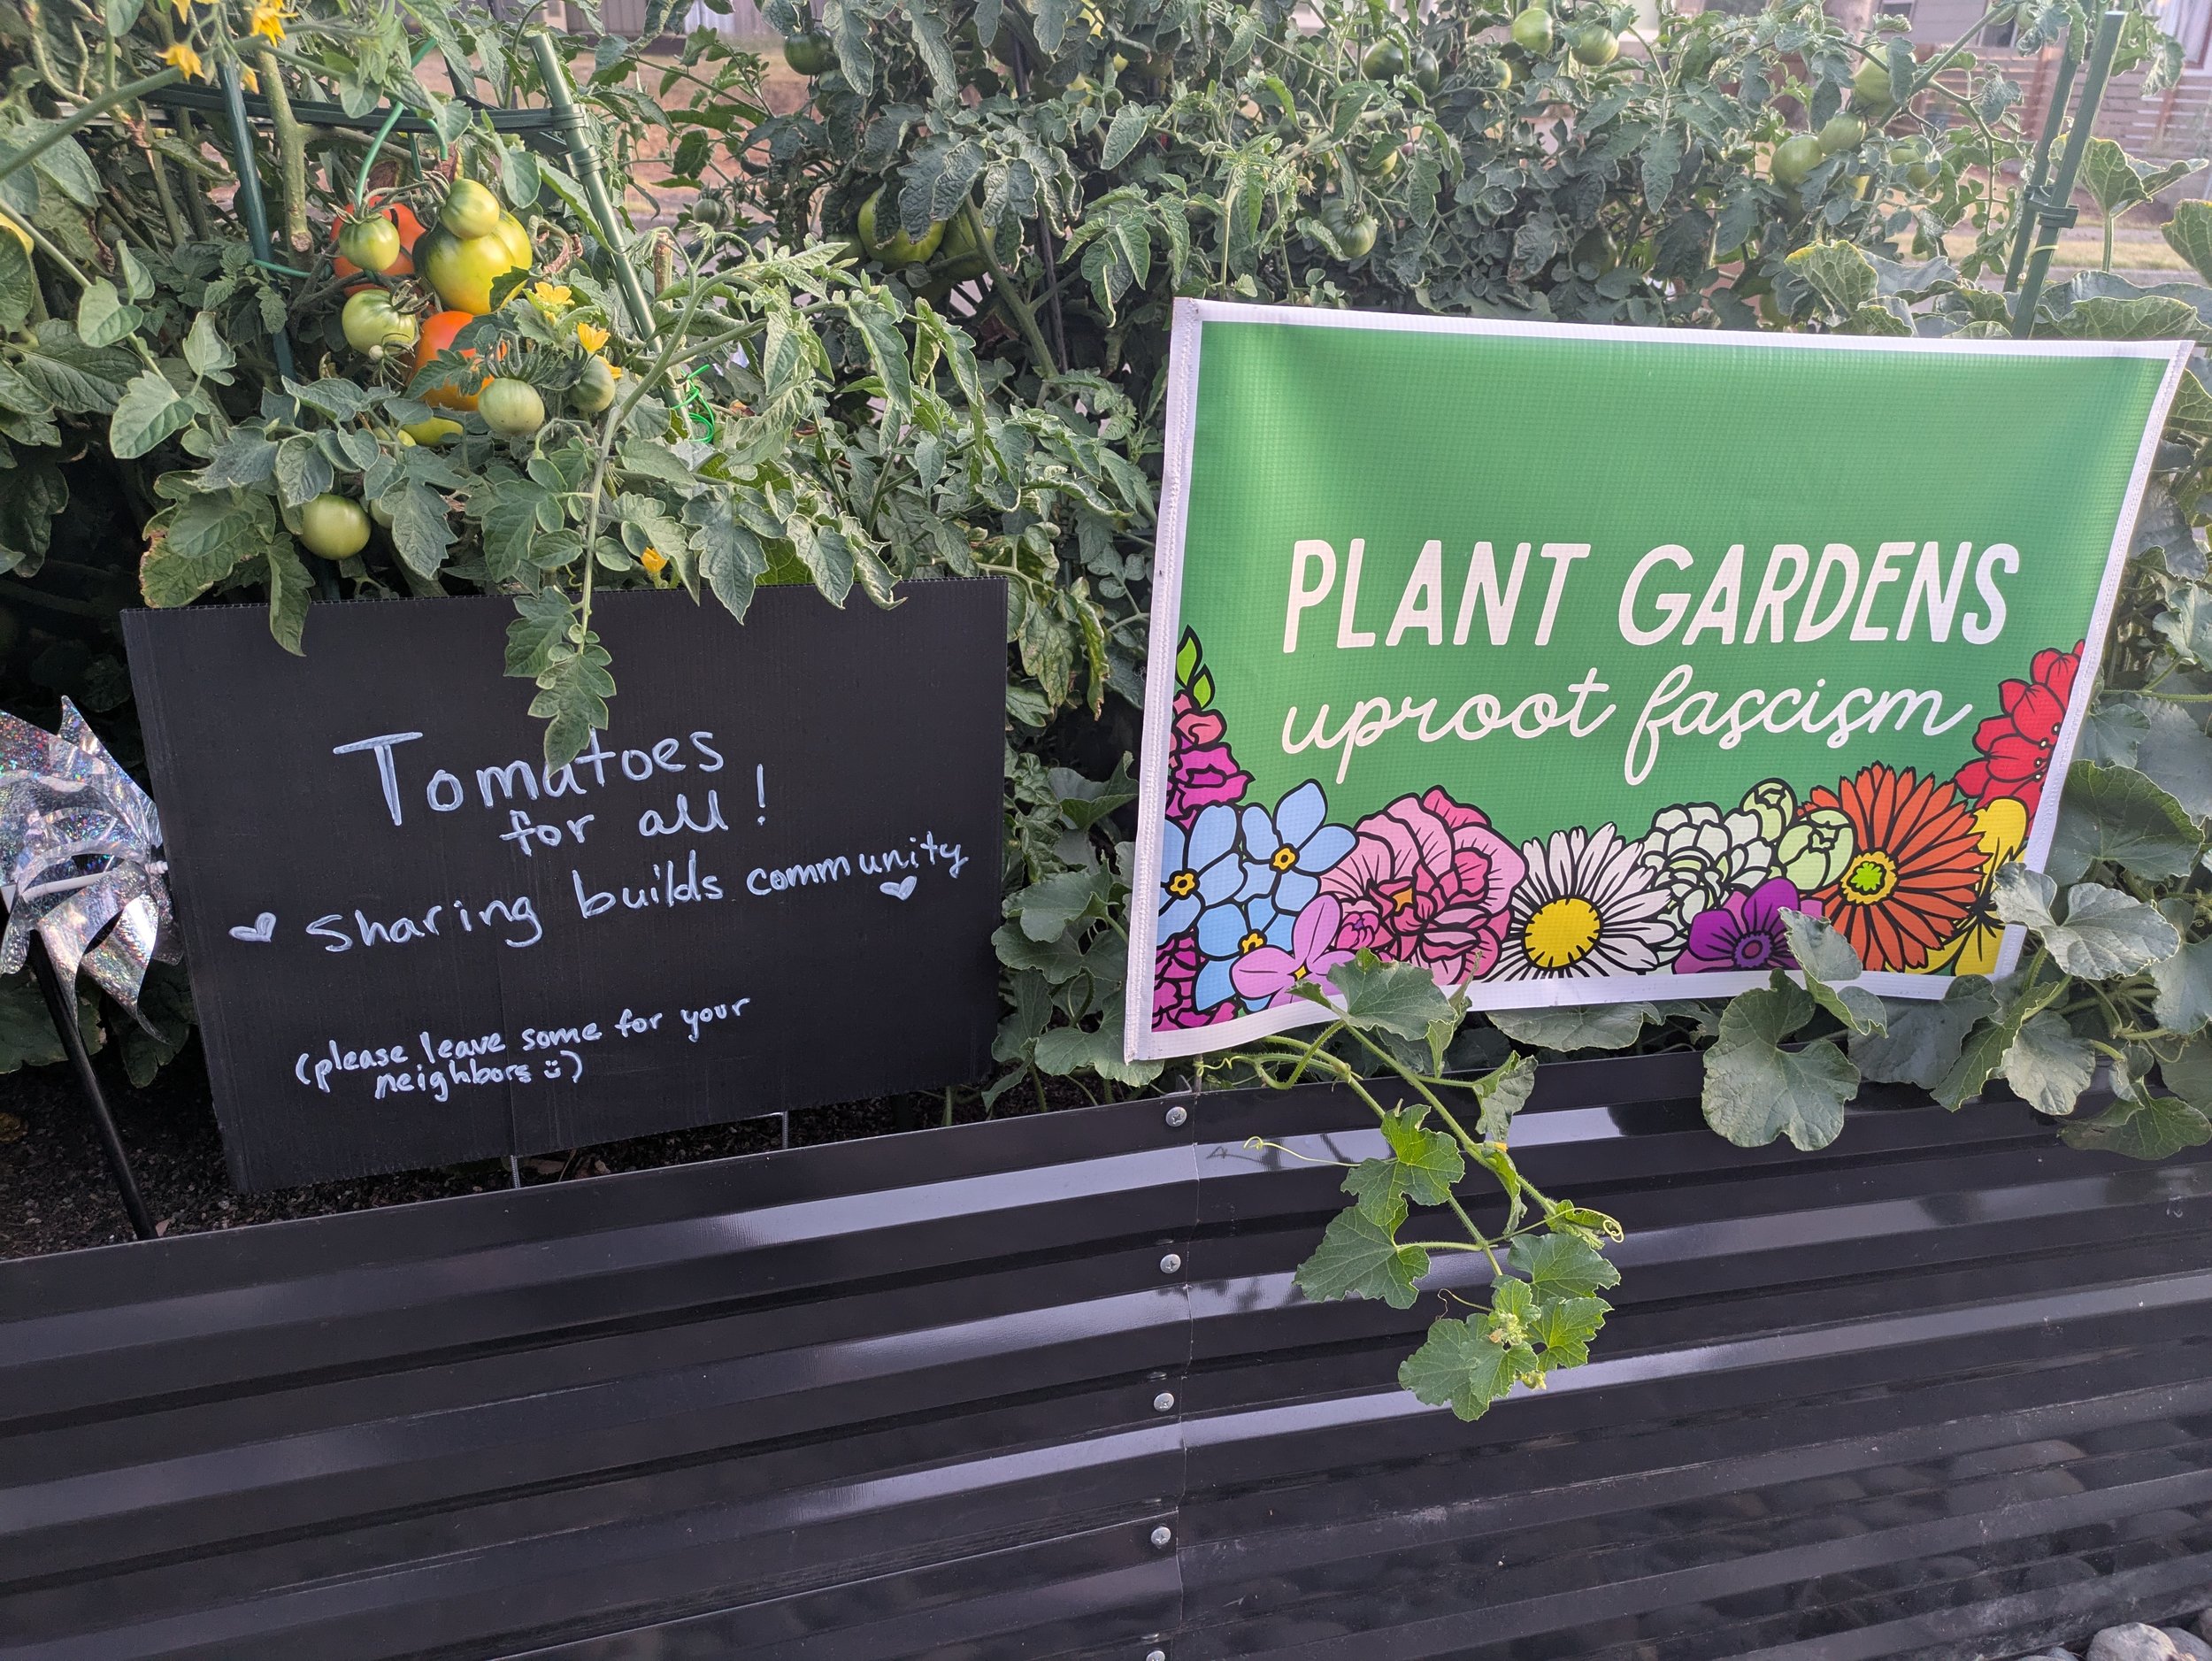 Tomatoes
for all!
♡ Sharing builds community ♡
(please leave some for your
neighbors ü)
PLANT GARDENS
uproot fascism